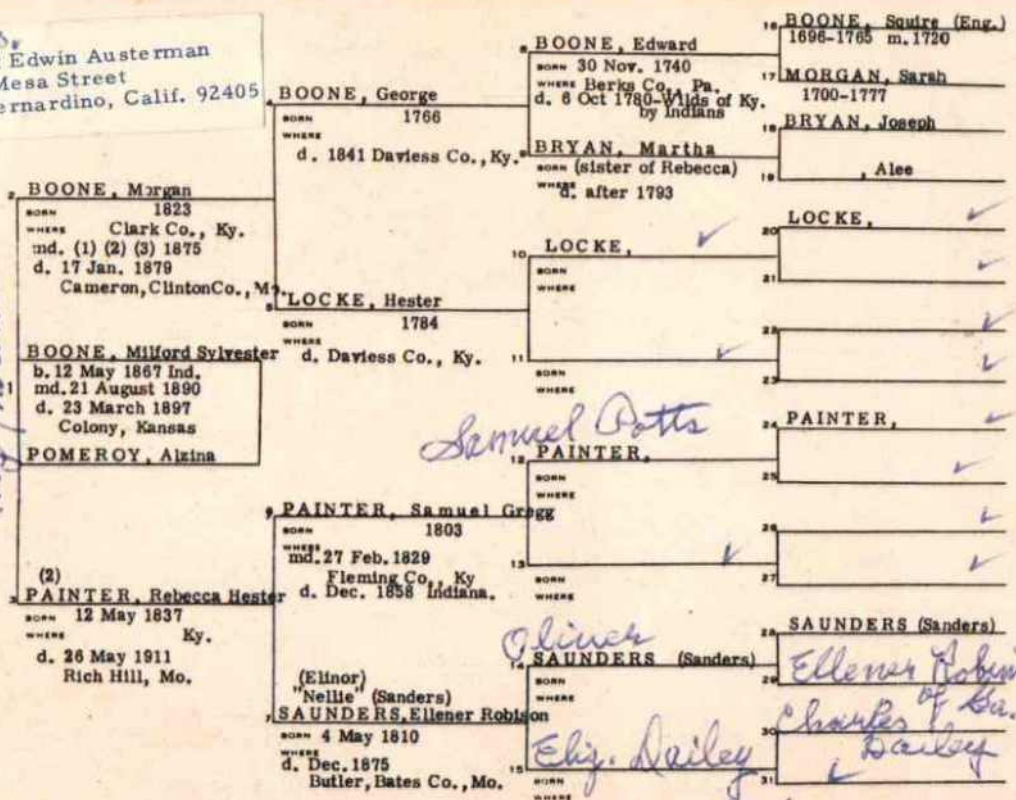 Edwin Austerman
Mesa Street
ernardino, Calif. 92405
2 BOONE, Morgan
BORN 1823
WHERE Clark Co., Ky.
md. (1) (2) (3) 1875
d. 17 Jan. 1879
Cameron, ClintonCo., Mo.
1 BOONE, Milford Sylvester
b. 12 May 1867 Ind.
md. 21 August 1890
d. 23 March 1897
Colony, Kansas
POMEROY, Alzina
(2)
3 PAINTER, Rebecca Hester
BORN 12 May 1837
WHERE Ky.
d. 26 May 1911
Rich Hill, Mo.
BOONE, George
BORN 1766
WHERE
d. 1841 Daviess Co., Ky.
5 LOCKE, Hester
BORN 1784
d. Daviess Co., Ky.
PAINTER, Samuel Gregg
BORN 1803
WHERE
md. 27 Feb. 1829
Fleming Co., Ky
d. Dec. 1858 Indiana.
(Elinor)
"Nellie" (Sanders)
7 SAUNDERS, Ellener Robison
BORN 4 May 1810
WHERE
d. Dec. 1875
Butler, Bates Co., Mo.
8 BOONE, Edward
BORN 30 Nov. 1740
WHERE Berks Co., Pa.
d. 6 Oct 1780-Wilds of Ky.
by Indians
9 BRYAN, Martha
BORN (sister of Rebecca)
WHERE
d. after 1793
10 LOCKE,
BORN
WHERE
11
BORN
WHERE
Samuel Potts
12 PAINTER,
BORN
WHERE
13
BORN
WHERE
Oliver
14 SAUNDERS (Sanders)
BORN
WHERE
Eliz. Dailey
15
BORN
WHERE
16 BOONE, Squire (Eng.)
1696-1765 m. 1720
17 MORGAN, Sarah
1700-1777
18 BRYAN, Joseph
19 , Alee
20 LOCKE,
21
22
23
24 PAINTER,
25
26
27
28 SAUNDERS (Sanders)
29 Ellener Robin
of Ga.
30 Charles
Dailey
31